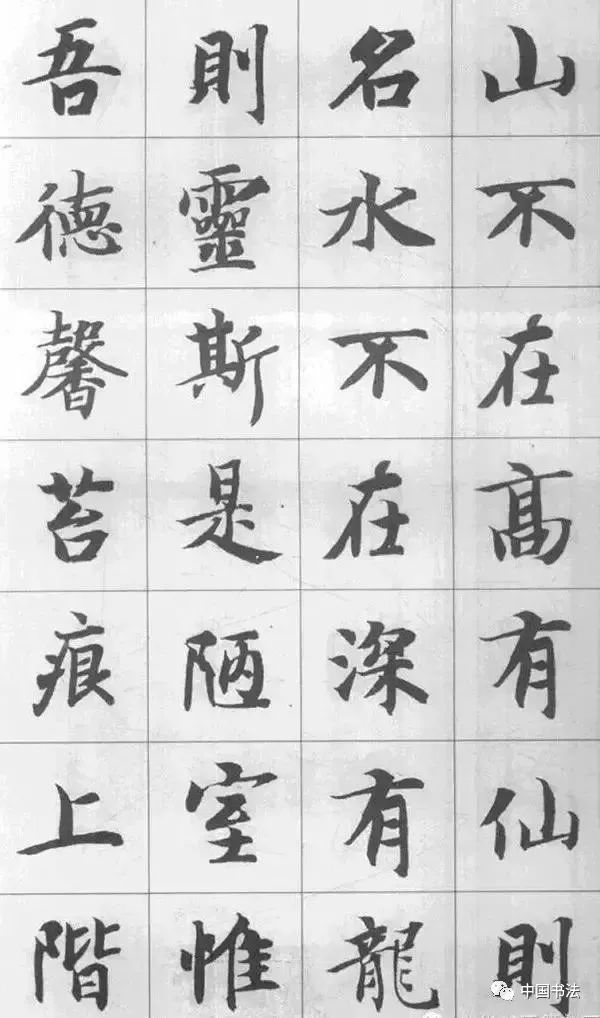 山不在高有仙則
名水不在深有龍
則靈斯是陋室惟
吾德馨苔痕上階
中国书法